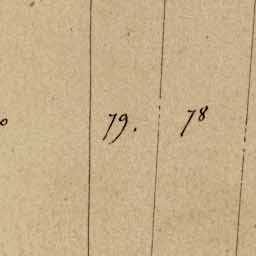 79. 78